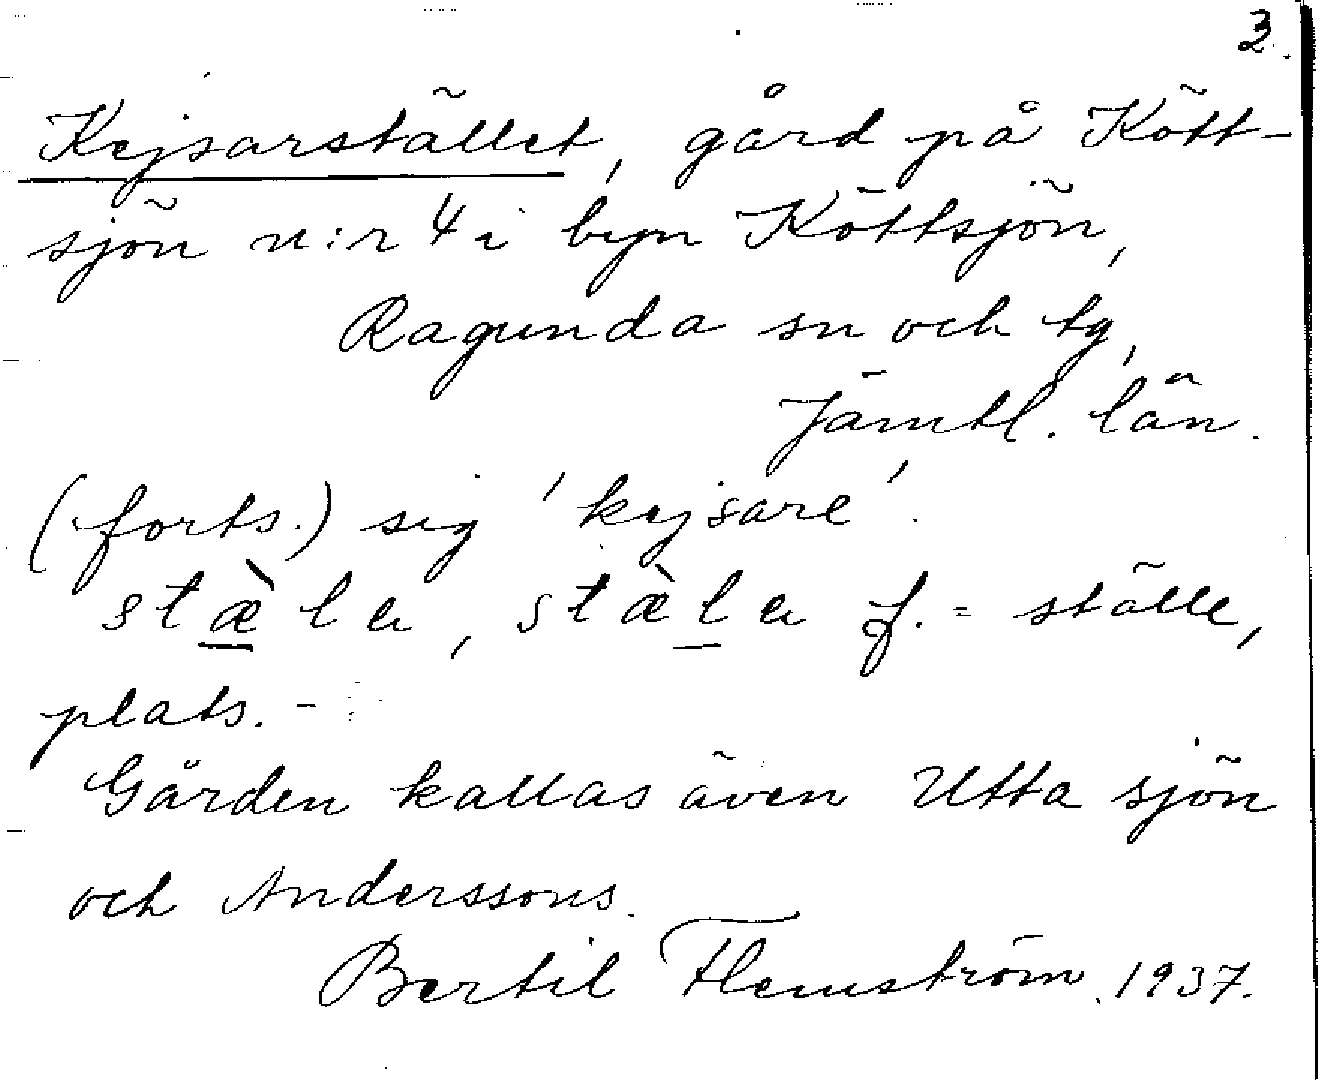 3.
Kejsarstället, gård på Kött-
sjön n:r 4 i byn Köttsjön,
Ragunda sn och tg,
Jämtl. län.
(forts.) sig 'kejsare'.
stæ̀la, stæ̀la f. = ställe,
plats. -
Gården kallas även Utta sjön
och Anderssons.
Bertil Flemström. 1937.